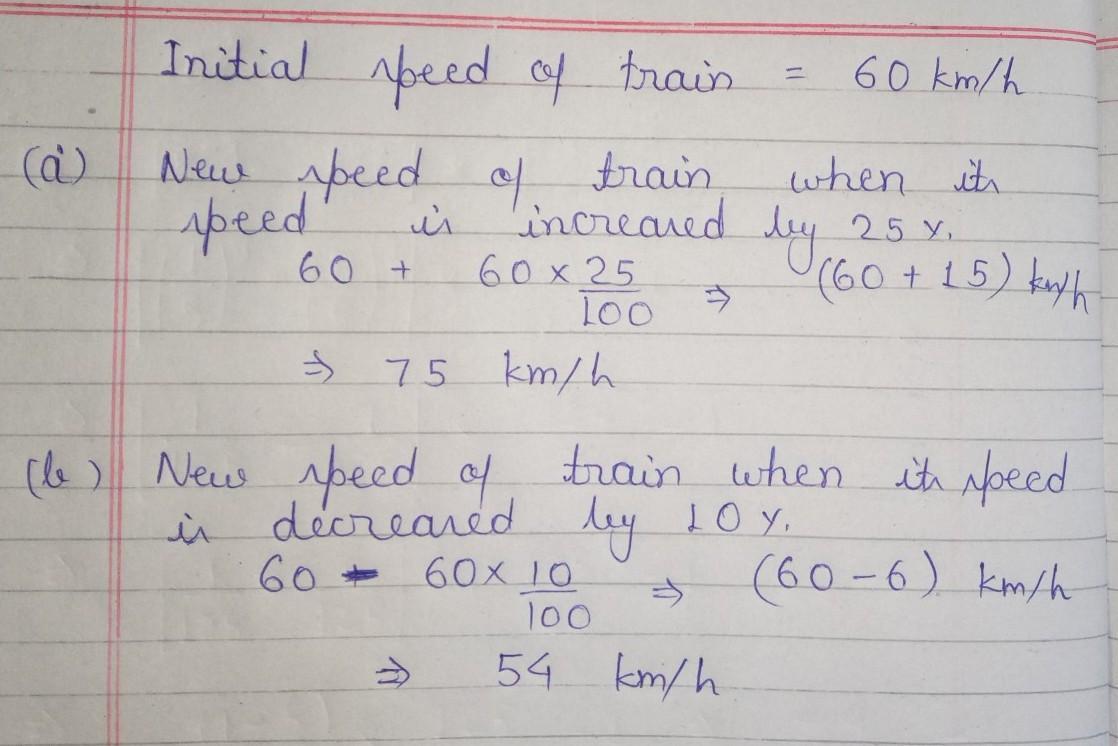 Initial speed of train = 60 km/h
(a) New speed of train when its
speed is increased by 25 %.
60 + 60 × 25/100 ⇒ (60 + 15) km/h
⇒ 75 km/h
(b) New speed of train when its speed
is decreased by 10 %.
60 - 60 × 10/100 ⇒ (60 - 6) km/h
⇒ 54 km/h